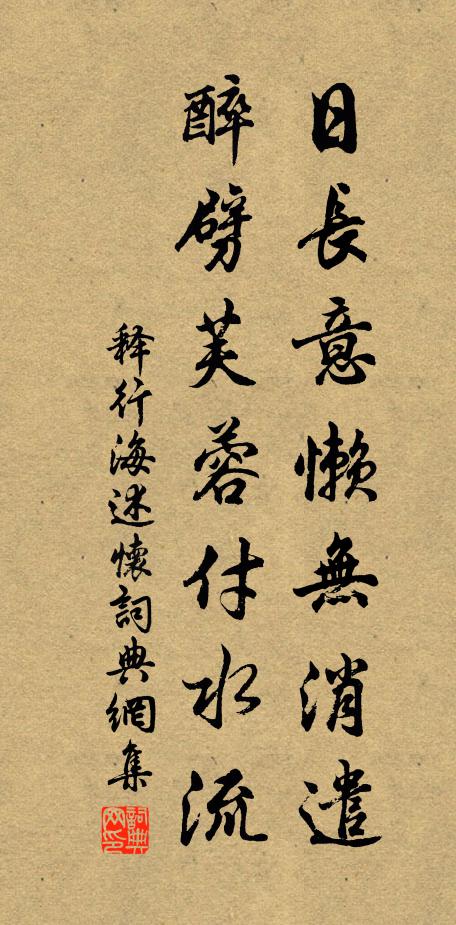 日長意懶無消遣
醉劈芙蓉付水流
释行海述懷詞典網集
詞典网印